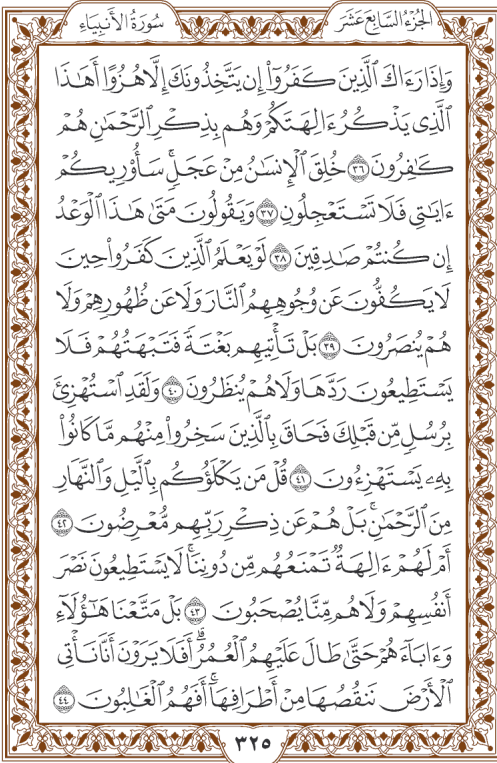 سُورَةُ الأَنبِيَاءِ
الجُزْءُ السَّابِعَ عَشَرَ
وَإِذَا رَءَاكَ ٱلَّذِينَ كَفَرُوٓا۟ إِن يَتَّخِذُونَكَ إِلَّا هُزُوًا أَهَٰذَا
ٱلَّذِى يَذْكُرُ ءَالِهَتَكُمْ وَهُم بِذِكْرِ ٱلرَّحْمَٰنِ هُمْ
كَٰفِرُونَ ٣٦ خُلِقَ ٱلْإِنسَٰنُ مِنْ عَجَلٍ ۚ سَأُو۟رِيكُمْ
ءَايَٰتِى فَلَا تَسْتَعْجِلُونِ ٣٧ وَيَقُولُونَ مَتَىٰ هَٰذَا ٱلْوَعْدُ
إِن كُنتُمْ صَٰدِقِينَ ٣٨ لَوْ يَعْلَمُ ٱلَّذِينَ كَفَرُوا۟ حِينَ
لَا يَكُفُّونَ عَن وُجُوهِهِمُ ٱلنَّارَ وَلَا عَن ظُهُورِهِمْ وَلَا
هُمْ يُنصَرُونَ ٣٩ بَلْ تَأْتِيهِم بَغْتَةً فَتَبْهَتُهُمْ فَلَا
يَسْتَطِيعُونَ رَدَّهَا وَلَا هُمْ يُنظَرُونَ ٤٠ وَلَقَدِ ٱسْتُهْزِئَ
بِرُسُلٍ مِّن قَبْلِكَ فَحَاقَ بِٱلَّذِينَ سَخِرُوا۟ مِنْهُم مَّا كَانُوا۟
بِهِۦ يَسْتَهْزِءُونَ ٤١ قُلْ مَن يَكْلَؤُكُم بِٱلَّيْلِ وَٱلنَّهَارِ
مِنَ ٱلرَّحْمَٰنِ ۚ بَلْ هُمْ عَن ذِكْرِ رَبِّهِم مُّعْرِضُونَ ٤٢
أَمْ لَهُمْ ءَالِهَةٌ تَمْنَعُهُم مِّن دُونِنَا ۚ لَا يَسْتَطِيعُونَ نَصْرَ
أَنفُسِهِمْ وَلَا هُم مِّنَّا يُصْحَبُونَ ٤٣ بَلْ مَتَّعْنَا هَٰٓؤُلَآءِ
وَءَابَآءَهُمْ حَتَّىٰ طَالَ عَلَيْهِمُ ٱلْعُمُرُ ۗ أَفَلَا يَرَوْنَ أَنَّا نَأْتِى
ٱلْأَرْضَ نَنقُصُهَا مِنْ أَطْرَافِهَآ ۚ أَفَهُمُ ٱلْغَٰلِبُونَ ٤٤
٣٢٥